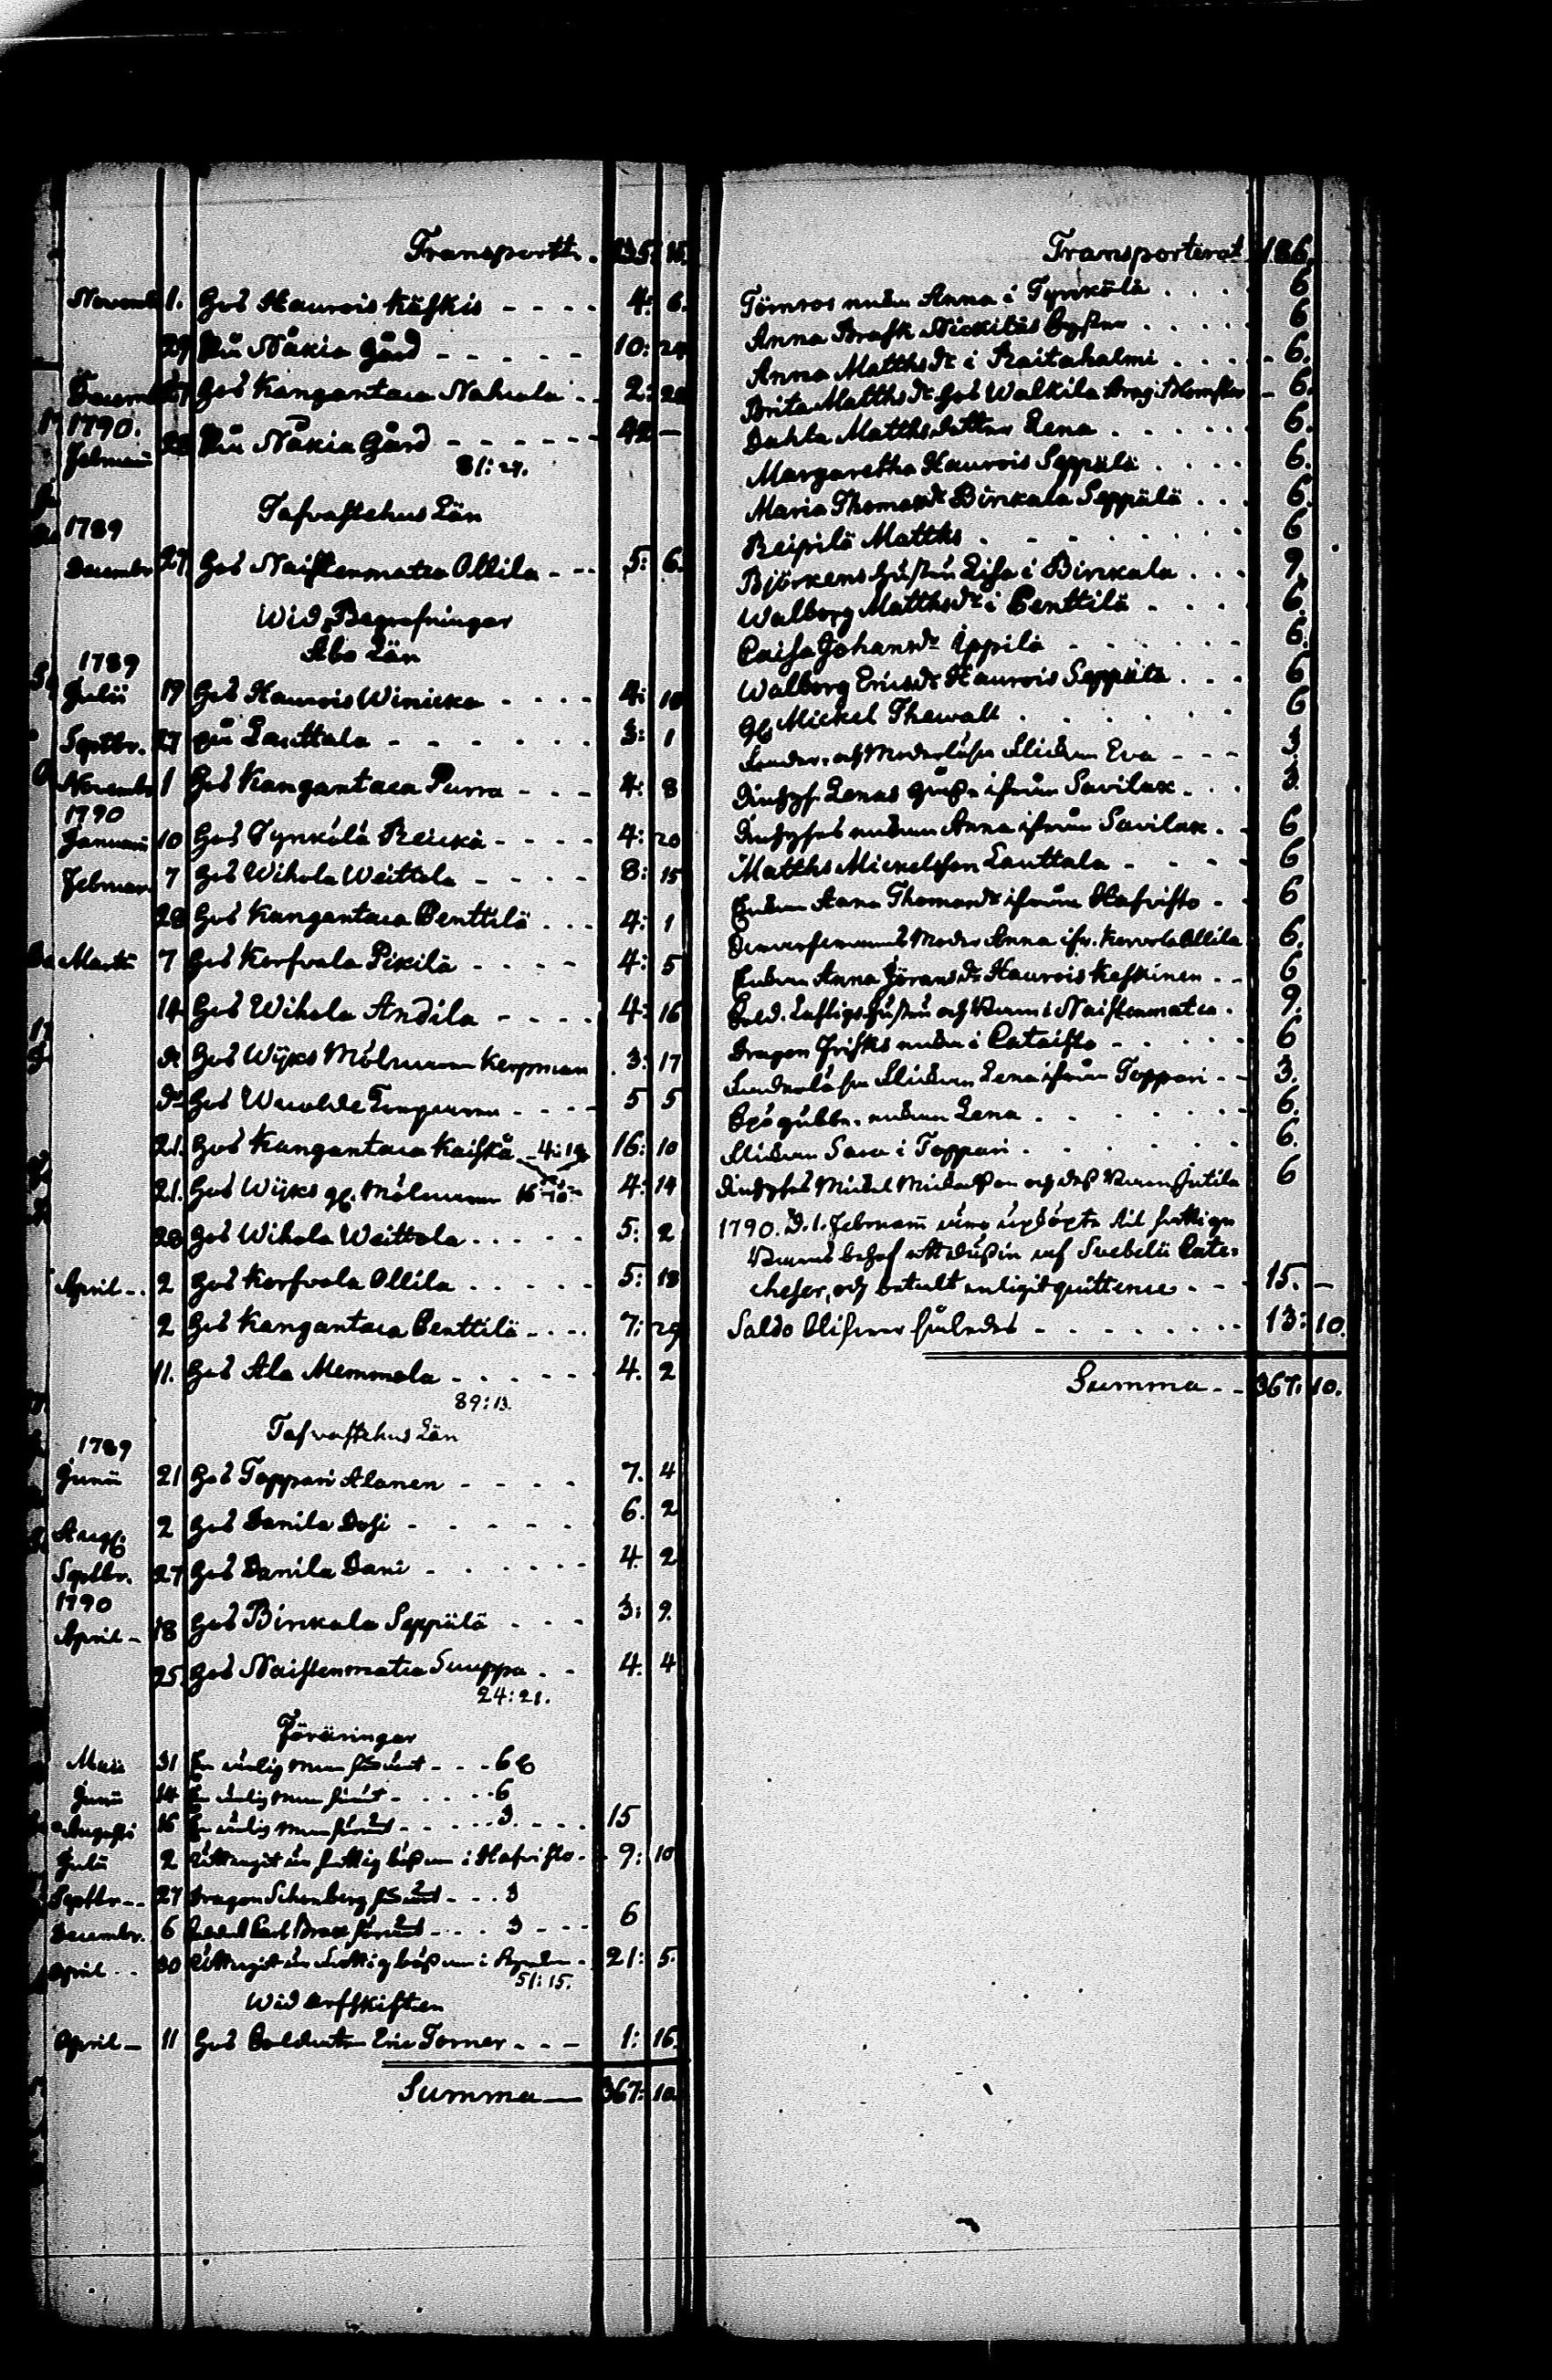 Transportt. 135: 15.
Novemb 1. Hos Haurois Käskis - - - - 4: 6.
29 På Näkia Gård - - - - - 10: 24
Decemb 27 Hos Kangantaca Nahcola - - 2: 20
1790.
Februarii 28 På Näkia Gård - - - - - - 42 -
81: 24.
Tafvastehus Län
1789
Decembr 27 Hos Naistenmatca Ollila - - - 5: 6.
Wid Begrafningar
Åbo Län
1789
Julii 19 Hos Haurois Winicka - - - - 4: 10
Septbr. 27 på Lauttala - - - - - - 3: 1
Novembr 1 Hos Kangantaca Purra - - - 4: 8
1790
Januarii 10 Hos Tynkälä Reicka - - - - 4: 20
Februar. 7 Hos Wihola Weittola - - - - 8: 15
28 Hos Kangantaca Penttilä . . . 4: 1
Martii 7 Hos Korfvala Pixilä - - - - 4: 5
14 Hos Wihola Andila - - - - 4: 16
do Hos Wijks Mölnaren Kerpman . 3: 17
do Hos - - - - 5 5
21. Hos Kangantaca Kaiskå - 4: 14 16: 10
21. Hos Wijks gl. Mölnaren 16: 10: - 4: 14
28 Hos Wihola Weittola . . . . . 5: 2
April - - 2 Hos Korfvola Ollila . . . . . 5: 18
2 Hos Kangantaca Penttilä - . . . 7: 29
11. Hos Ala Memmola . . . . . . 4. 2
89: 13.
Tafvastehus Län
1789
Junii 21 Hos Toppari Alanen - - - - 7. 4
Aug. 2 Hos Danila Dosi - - - - - - 6. 2
Septbr. 27 Hos Danila Dani - - - - - - 4. 2
1790
April - 18 Hos Birkala Seppälä - - - 3: 9.
25. Hos Naistenmatca Suuppa . - 4. 4
24: 21.
Föräringar
Maii 31 En ärlig man förärt - - - 6
Junii 14 En ärlig man förärt - . . . - 6
Augusti 16 En ärlig man förärt - - - - - 3. - - - 15
Julii 2 Uttagit ur fattig bössan i Hafvisto - - 9: 10
Septbr - - 27 Dragon Schonberg förärt - - - 3
Decembr. 6 förärt - - - 3 - - - 6
April - - 30 Uttagit ur Fattig bössan i Kyrkan - 21: 5.
51: 15.
Wid arfskiften
April - 11 Hos Soldaten Eric Torner - - - 1: 16.
Summa — 367: 10
Transporterat 186.
Törnros enkan Anna i Tynkölä . . . . 6
Anna Brask Nickitäs . . . . . 6
Anna Matthsdr i Raitahalmi . . . . - 6.
Brita Matthsdr hos Walkila - 6.
Dahla Matths dotter Lena . . . . . . 6.
Margaretha Haurois Seppälä . . . . 6.
Maria Thomasdr Birkala Seppälä . . . 6.
Reipilä Matths . - - - . . . . . 6
Björkens hustru Lisa i Birkala . . . 9.
Walborg Matthsdr i Penttilä . . . . 6.
Caisa Johansdr Ippilä - - - - - - - 6.
Walborg Ericsdr Haurois Seppälä . . . 6
gl. Mickel Thewalt . . . . . . . 6
Fader- och Moderlösa Flickan Eva - - - 3
Lenas ifrån Savilax . . . 3.
enkan Anna ifrån Savilax . - 6
Matths Mickelsson Lauttala - - - - - 6
Enkan Anna Thomasdr ifrån Hafvisto - - 6
Moder Anna ifr. Korvola Ollila 6.
Enkan Anna Jöransdr Haurois Keskinen - - 6
Sold. Lustigs hustru och Barn i Naistenmatca . 9.
Dragon Frisks enka i Pataisto - - - - - 6
Faderlösa Flickan Lena ifrån Toppari - - 3.
enkan Lena . - - - - - - - 6.
Flickan Sara i Toppari . - - - - - - 6.
Mickel Mickelsson och dess Barn Jutila 6
1790. D. 1. Februarii äro upköpte til fattiga
Barns behof ett dussin af Svebelii Cate-
cheser, och betalt enligit quittence - - - 15. -
Saldo blifver således - - - - - - - - 13: 10.
Summa - - 367: 10.